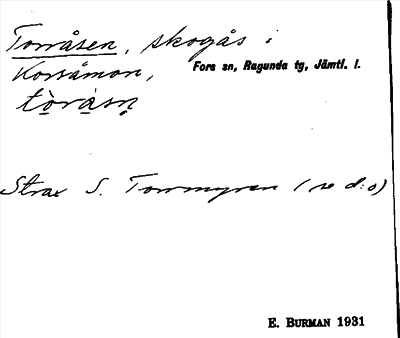 Torråsen, skogås i
Korsåmon, Fors sn, Ragunda tg, Jämtl. l.
tòråsn̥
Strax S. Torrmyren (se d:o)
E. BURMAN 1931